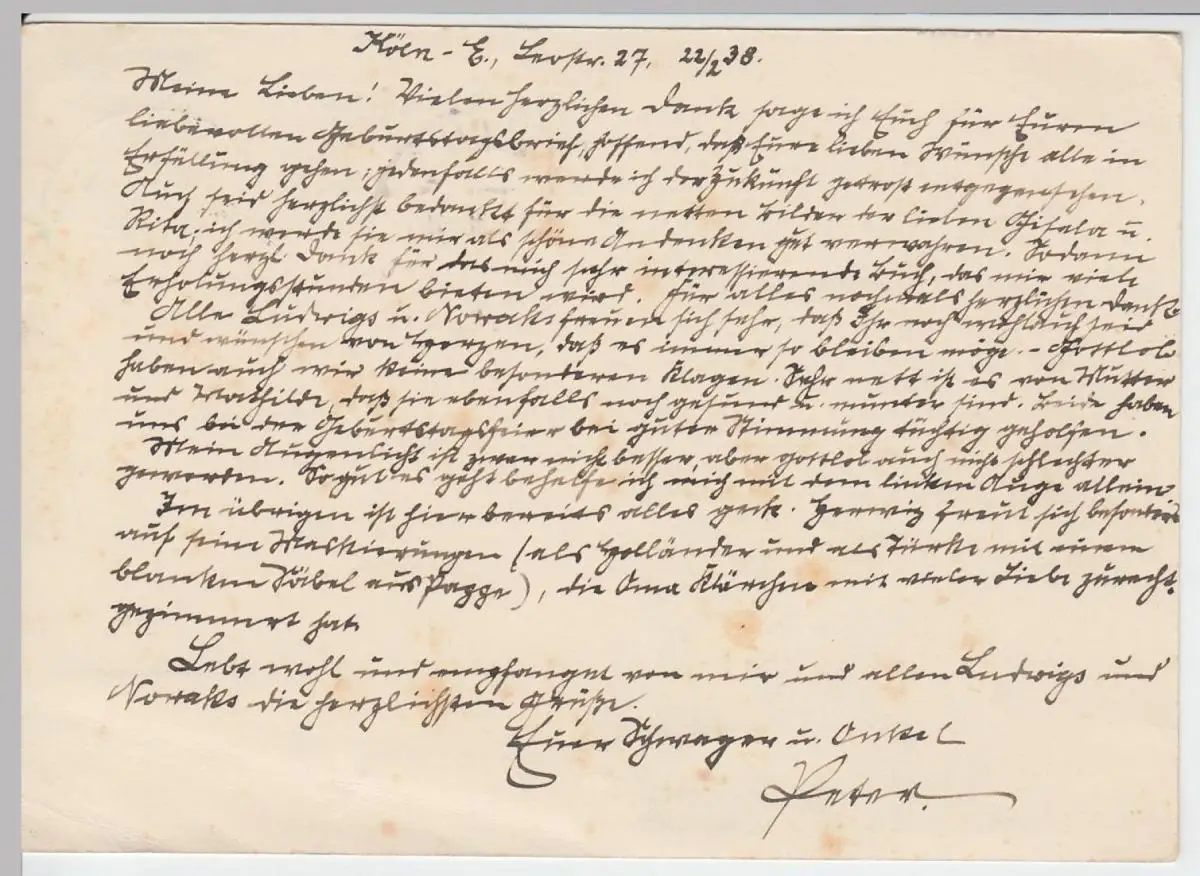 Köln - E., Leostr. 27, 22/2 38.
Meine Lieben! Vielen herzlichen Dank sage ich Euch für Euren
liebevollen Geburtstagsbrief, hoffend, daß Eure lieben Wünsche alle in
Erfüllung gehen; jedenfalls werde ich der Zukunft getrost entgegensehen.
Auch seid herzlichst bedankt für die netten Bilder der lieben Gisela u.
Rita; ich werde sie mir als schöne Andenken gut verwahren. Sodann
noch herzl. Dank für das mich sehr interessierende Buch, das mir viele
Erholungsstunden bieten wird. Für alles nochmals herzlichen Dank.
Alle Ludwigs u. Nowaks freuen sich sehr, daß Ihr noch wohlauf seid
und wünschen von Herzen, daß es immer so bleiben möge. - Gottlob
haben auch wir keine besonderen Klagen. Sehr nett ist es von Mutter
und Mathilde, daß sie ebenfalls noch gesund u. munter sind. Beide haben
uns bei der Geburtstagsfeier bei guter Stimmung tüchtig geholfen.
Mein Augenlicht ist zwar nicht besser, aber gottlob auch nicht schlechter
geworden. So gut es geht behelfe ich mich mit dem linken Auge allein.
Im übrigen ist hier bereits alles geck. Herwig freut sich besonders
auf seine Maskierungen (als Holländer und als Türke mit einem
blanken Säbel aus Pappe), die Oma Klärchen mit vieler Liebe zurecht-
gezimmert hat.
Lebt wohl und empfanget von mir und allen Ludwigs und
Nowaks die herzlichsten Grüße.
Euer Schwager u. Onkel
Peter.